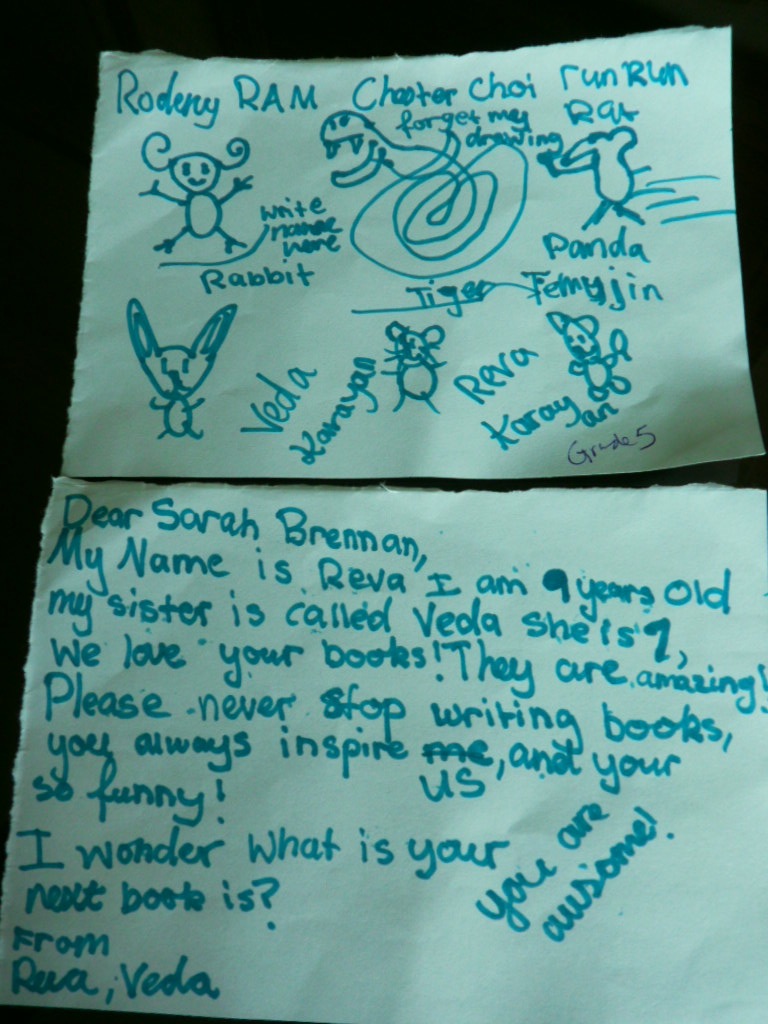 Rodeny RAM Chester Choi run Run
Rat
forget my
drawing
write
name
here
Rabbit
Panda
Tiger Temujin
Veda
Karayan
Reva
Karay
an
Grade 5
Dear Sarah Brennan,
My Name is Reva I am 9 years old
my sister is called Veda she is 7,
We love your books! They are amazing!
Please never stop writing books,
you always inspire me, and your
US
so funny!
I wonder what is your
next book is?
you are
awsome!
From
Reva, Veda